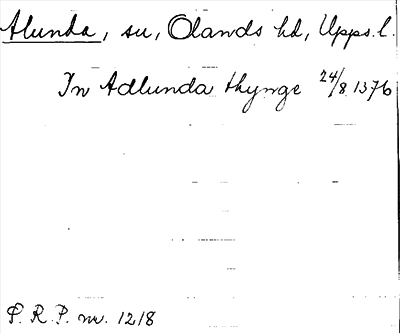 Alunda, su, Olands hd, Upps. l.
In Adlunda thynge 24/8 1376
P. R. P. nr. 1218